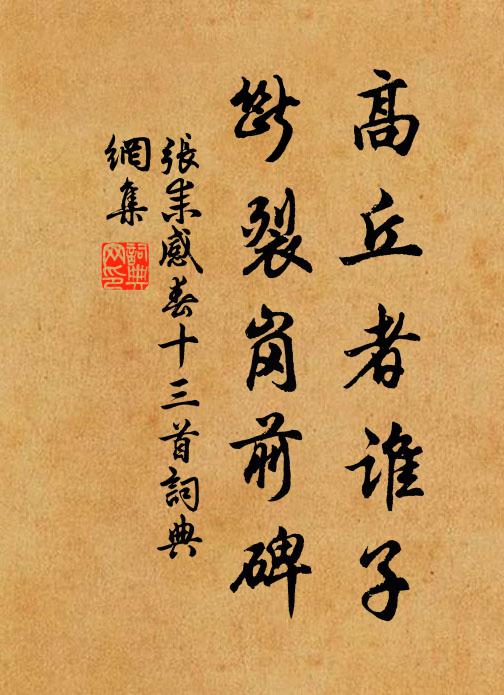 高丘者誰子
斷裂崗前碑
張耒感春十三首詞典
網集
詞典
网印